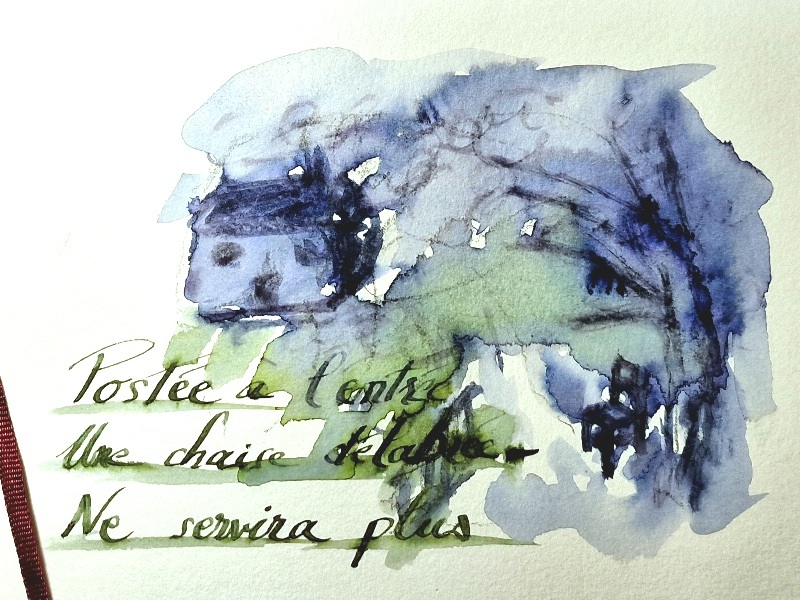 Postée à l'entrée
Une chaise délabrée -
Ne servira plus